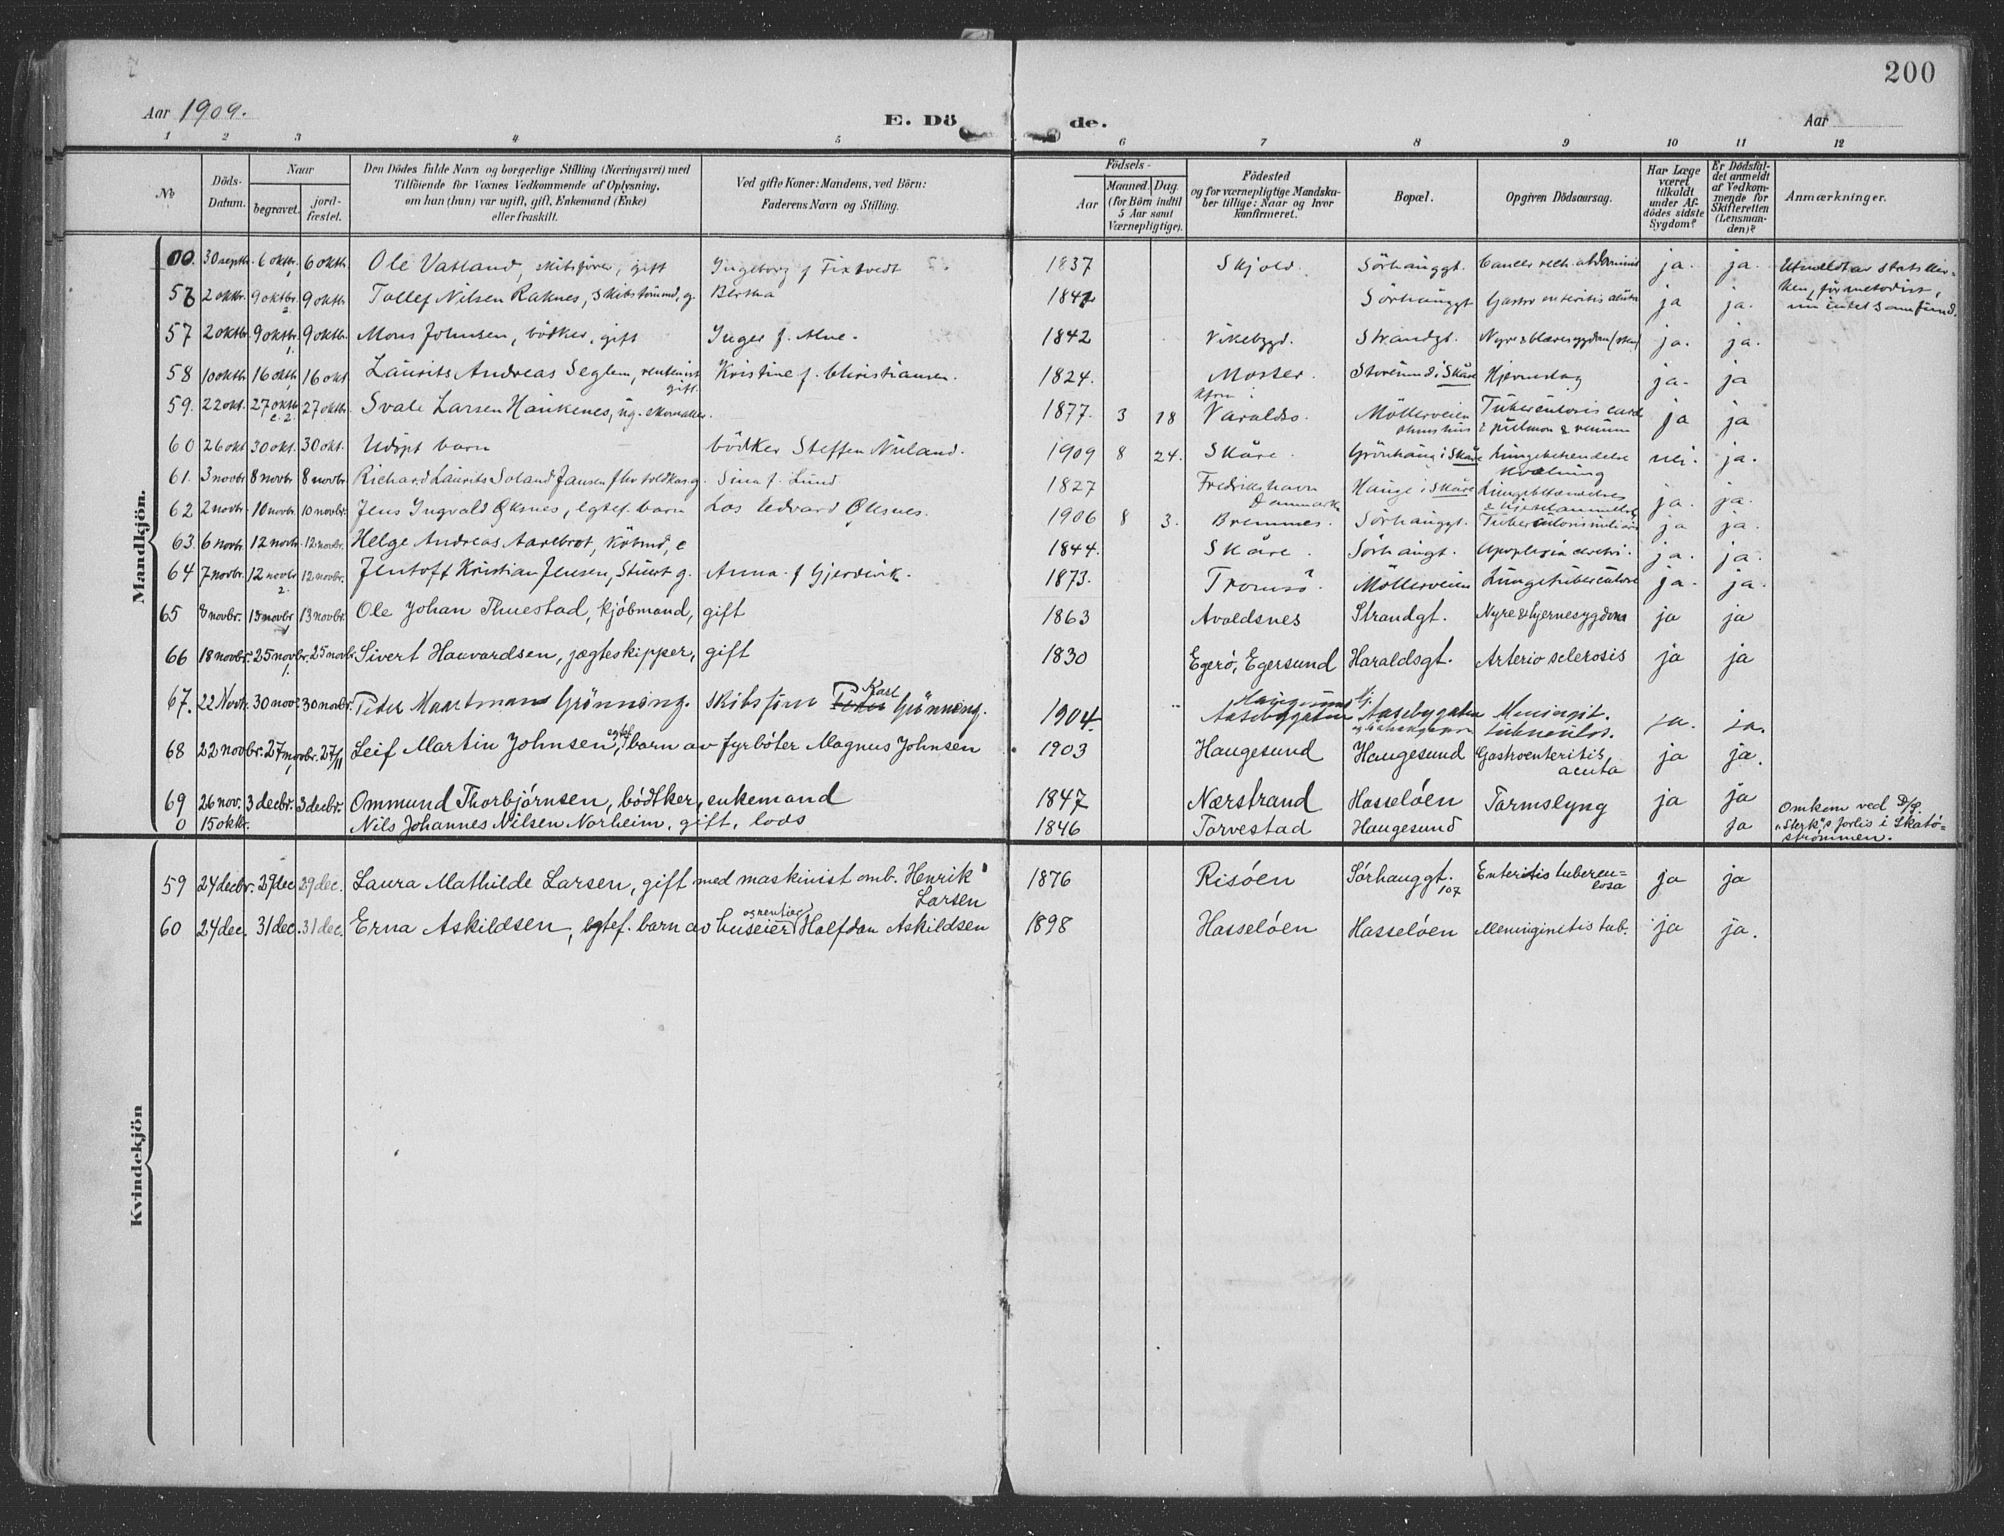 200
Aar 1909.
E. Dö de.
Aar
1 2 3 4 5 6 7 8 9 10 11 12
№
Döds-Datum.
Naar begravet. jordfæstet.
Den Dödes fulde Navn og borgerlige Stilling (Næringsvei) med
Tilföiende for Voxnes Vedkommende af Oplysning,
om han (hun) var ugift, gift, Enkemand (Enke)
eller fraskilt.
Ved gifte Koner: Mandens, ved Börn:
Faderens Navn og Stilling.
Födsels-
Aar
Maaned. Dag.
(for Börn indtil 5 Aar samt Værnepligtige).
Födested
og for værnepligtige Mandskaber tillige: Naar og hvor konfirmeret.
Bopæl.
Opgiven Dödsaarsag.
Har Læge været tilkaldt under Afdödes sidste Sygdom?
Er Dödsfaldet anmeldt af Vedkommende for Skifteretten (Lensmanden)?
Anmærkninger.
Mandkjön.
00. 30 septb. 6 oktbr. 6 oktb Ole Vatland, skibsfører, gift Ingeborg f. Tixtvedt 1837 Skjold. Sörhauggt. Cancer rech. abdominis ja. ja. Utmeldt av statskirken, før metodist, nu intet samfund.
56 2 oktbr. 9 oktbr. 9 oktbr. Tollef Nilsen Raknes, Skibstömmd, g. Bertha 1847 Sörhauggt Gastro enteritis ja ja.
57 2 oktbr 9 oktbr. 9 oktbr. Mons Johnsen, bödker, gift Inger f. Alne. 1842 Vikebygd. Strandgt. Nyre & blæresygdom ja. ja.
58 10 oktb 16 oktb. 16 okt Laurits Andreas Seglem, rentenist gift. Kristine f. Christiansen. 1824. Moster. Storesund i Skåre Hjerneslag ja. ja
59. 22 okt. 27 oktb 27 oktb. Svale Larsen Haukenes, ug. skomaker. 1877. 3 18 Varaldsö. Möllerveien Tuberculosis card & pulmon & renum ja ja
60 26 okt 30 okt. 30 okt. Udöpt barn bödker Steffen Niland. 1909 8 24. Skåre. Grönhaug i Skåre Lungebetændelse kvælning nei. ja.
61. 3 novbr 8 novbr 8 novbr. Richard Laurits Soland Jansen g. Sina f. Lund 1827 Fredrikshavn Danmark Hauge i Skåre Lungebetændelse ja. ja.
62 2 novbr. 10 novbr. 10 novbr. Jens Ingvald Öksnes, egtef. barn Los Edvard Öksnes. 1906 8 3. Bremnes. Sörhauggt. Tuberculosis miliaris ja ja.
63. 6 novbr 12 novbr. 12 novbr. Helge Andreas Aarebrot, kjöbmd, e 1844. Skåre. Sörhaugt. Apoplexia cerebri. ja. ja.
64 7 novbr. 12 novbr 12 novbr. Jentoft Kristian Jensen, Stuert g. Anna f Gjerdevik. 1873. Tromsö. Möllerveien Lungetuberculose ja. ja.
65 8 novbr. 13 novbr. 13 novbr. Ole Johan Thuestad, kjöbmand, gift 1863 Avaldsnes Strandgt. Nyre & hjernesygdom ja ja
66 18 novbr. 25 novbr. 25 novbr. Sivert Haavardsen, jægteskipper, gift 1830 Egerö, Egersund Haraldsgt. Arterio sclerosis ja ja
67. 22 Novbr. 30 nov. 30 novbr. Peder Maartmann Grönning. Skibsförer Peder Karl Grönning. 1904. Haugesund Aasebygaten Aasebygaten Meningit. tubercülos. ja. ja.
68 22 novbr. 27 novbr. 27/11 Leif Martin Johnsen, egtef. barn av fyrböter Magnus Johnsen 1903 Haugesund Haugesund Gastroenteritis acuta ja ja.
69 26 nov. 3 decbr. 3 decbr. Ommund Thorbjörnsen, bödtker, enkemand 1847 Nærstrand Hasselöen Tarmslyng ja ja
0 15 oktbr. Nils Johannes Nilsen Norheim, gift, lods 1846 Torvestad Haugesund ja Omkom ved D/S "Sterk"s forlis i Skatöströmmen.
Kvindekjön
59 24 decbr. 29 dec 29 dec. Laura Mathilde Larsen, gift med maskinist omb. Henrik Larsen 1876 Risöen Sörhauggt. 107 Enteritis tuberculosa ja ja
60 24 dec. 31 dec. 31 dec. Erna Askildsen, egtef. barn av huseier Halfdan Askildsen 1898 Hasselöen Hasselöen Meninginitis tub. ja ja.